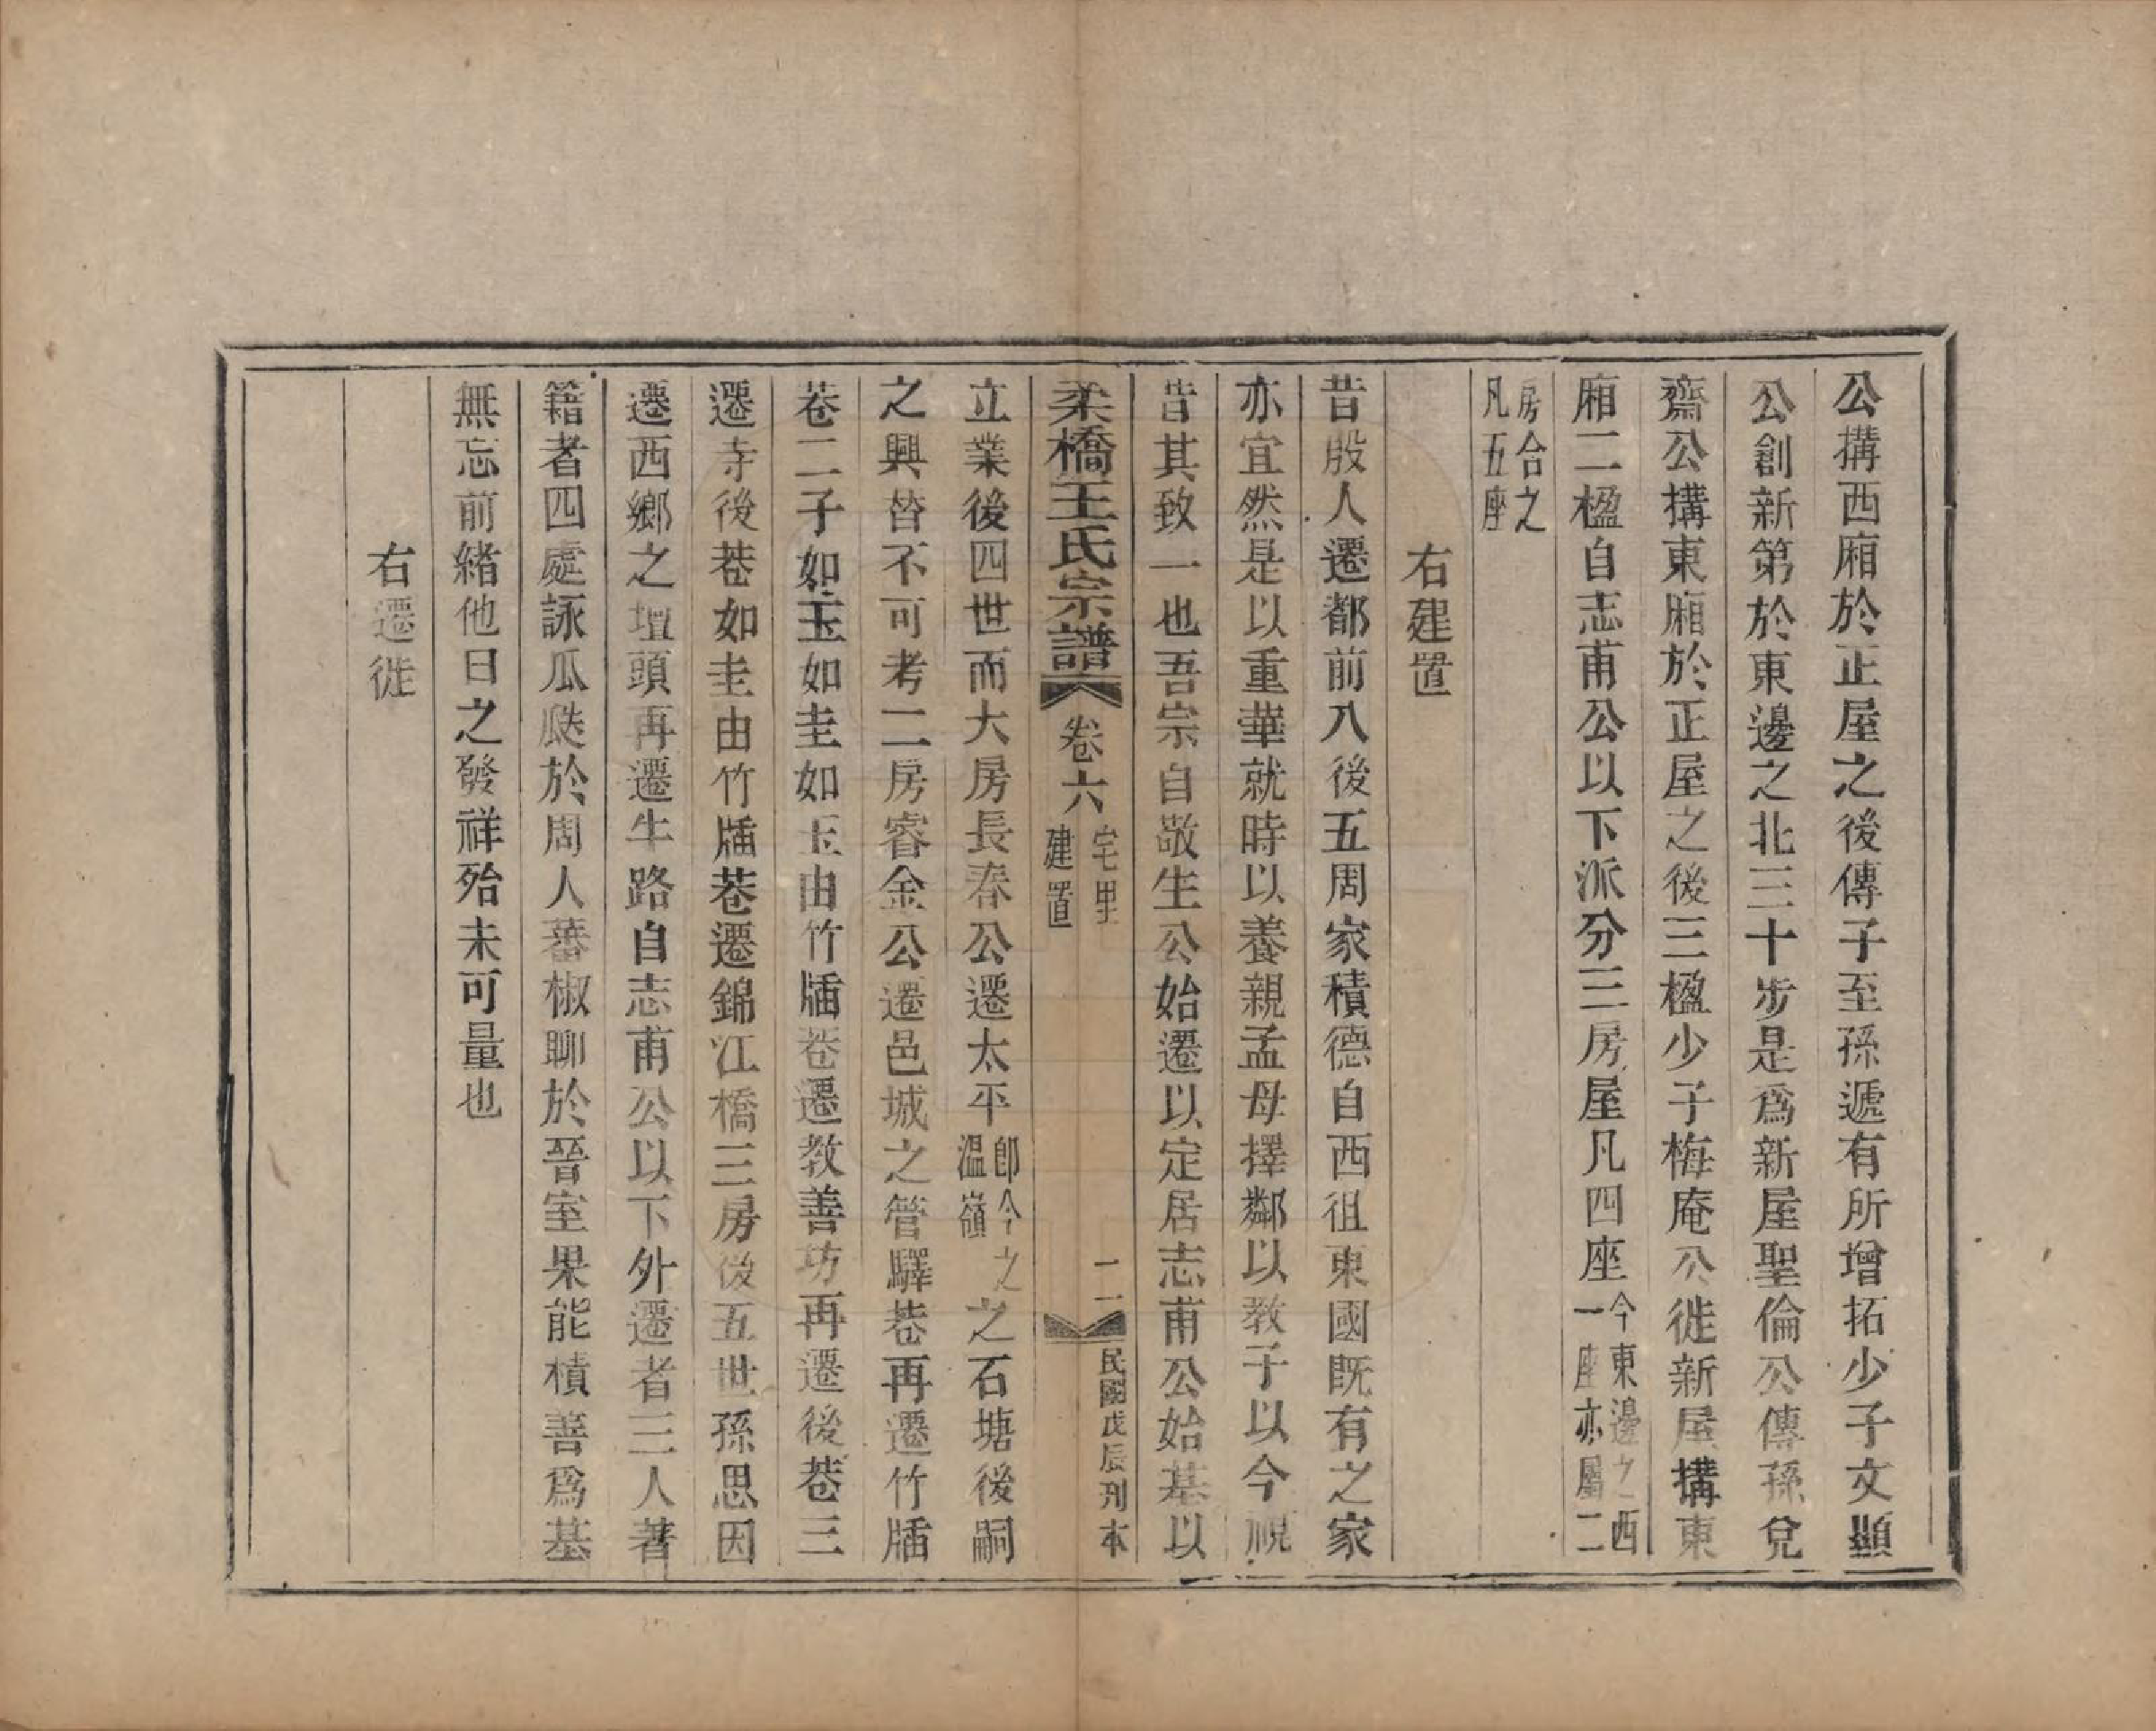 公搆西廂於正屋之後傳子至孫遞有所增拓少子文顯
公創新第於東邊之北三十步是爲新屋聖倫公傳孫兌
齋公搆東廂於正屋之後三楹少子梅庵公徙新屋搆東
廂二楹自志甫公以下派分三房屋凡四座今東邊之西一座亦屬二
房合之凡五座
右建置
昔殷人遷都前八後五周家積德自西徂東國既有之家
亦宜然是以重華就時以養親孟母擇鄰以教子以今視
昔其致一也吾宗自敬生公始遷以定居志甫公始基以
柔橋王氏宗譜
卷六
宅里
建置
二
民國戊辰刊本
立業後四世而大房長春公遷太平卽今之溫嶺之石塘後嗣
之興替不可考二房睿金公遷邑城之管驛巷再遷竹牐
巷二子如玉如圭如玉由竹牐巷遷教善坊再遷後巷三
遷寺後巷如圭由竹牐巷遷錦江橋三房後五世孫思因
遷西鄉之壇頭再遷牛路自志甫公以下外遷者三人著
籍者四處詠瓜瓞於周人蕃椒聊於晉室果能積善爲基
無忘前緒他日之發祥殆未可量也
右遷徙